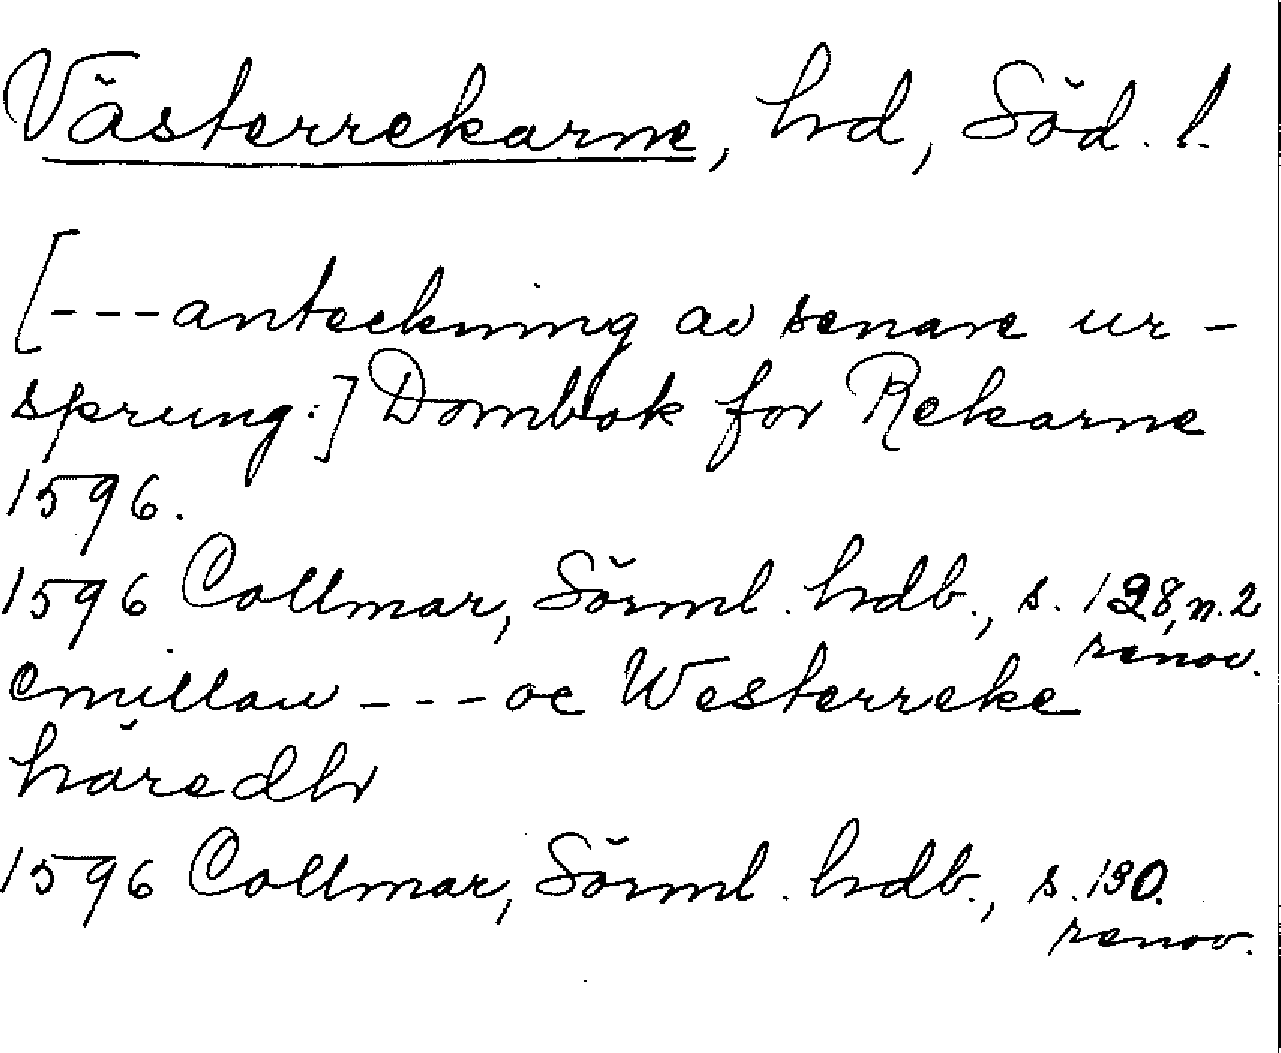 Västerrekarne, hd, Söd. l.
[---anteckning av senare ur-
sprung:] Dombok for Rekarne
1596.
1596 Collmar, Sörml. hdb., s. 128, n. 2
renov.
emillan --- oc Westerreke
häredhr
1596 Collmar, Sörml. hdb., s. 130.
renov.